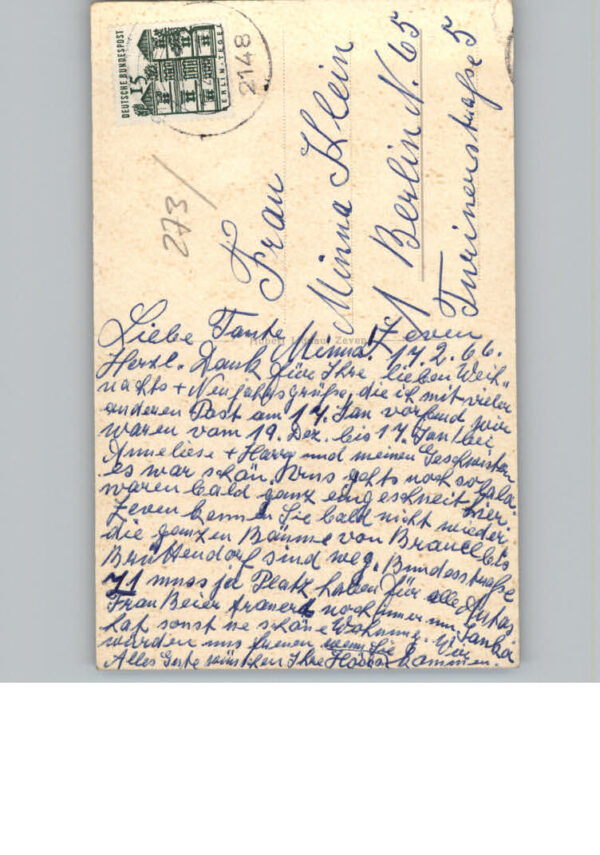 DEUTSCHE BUNDESPOST
15
BERLIN-TEGEL
2148
273/
Frau
Minna Klein
1 Berlin N. 65
Turinerstraße 5
Zeven
17.2.66.
Liebe Tante Minna!
Herzl. Dank für Ihre lieben Weih-
nachts + Neujahrsgrüße, die ich mit vieler
anderen Post am 17. Jan vorfand, wir
waren vom 19. Dez. bis 17. Jan bei
Anneliese + Harry und meinen Geschwistern
es war schön. Uns gehts noch so lala
waren bald ganz eingeschneit hier.
Zeven kennen Sie bald nicht wieder
die ganzen Bäume von Brauel bis
Brüttendorf sind weg, Bundesstraße
71 muss ja Platz haben für alle Autos
Frau Beier trauert noch immer um
hat sonst ne schöne Wohnung. Wir
würden uns freuen wenn Sie kommen.
Alles Gute wünschen Ihre